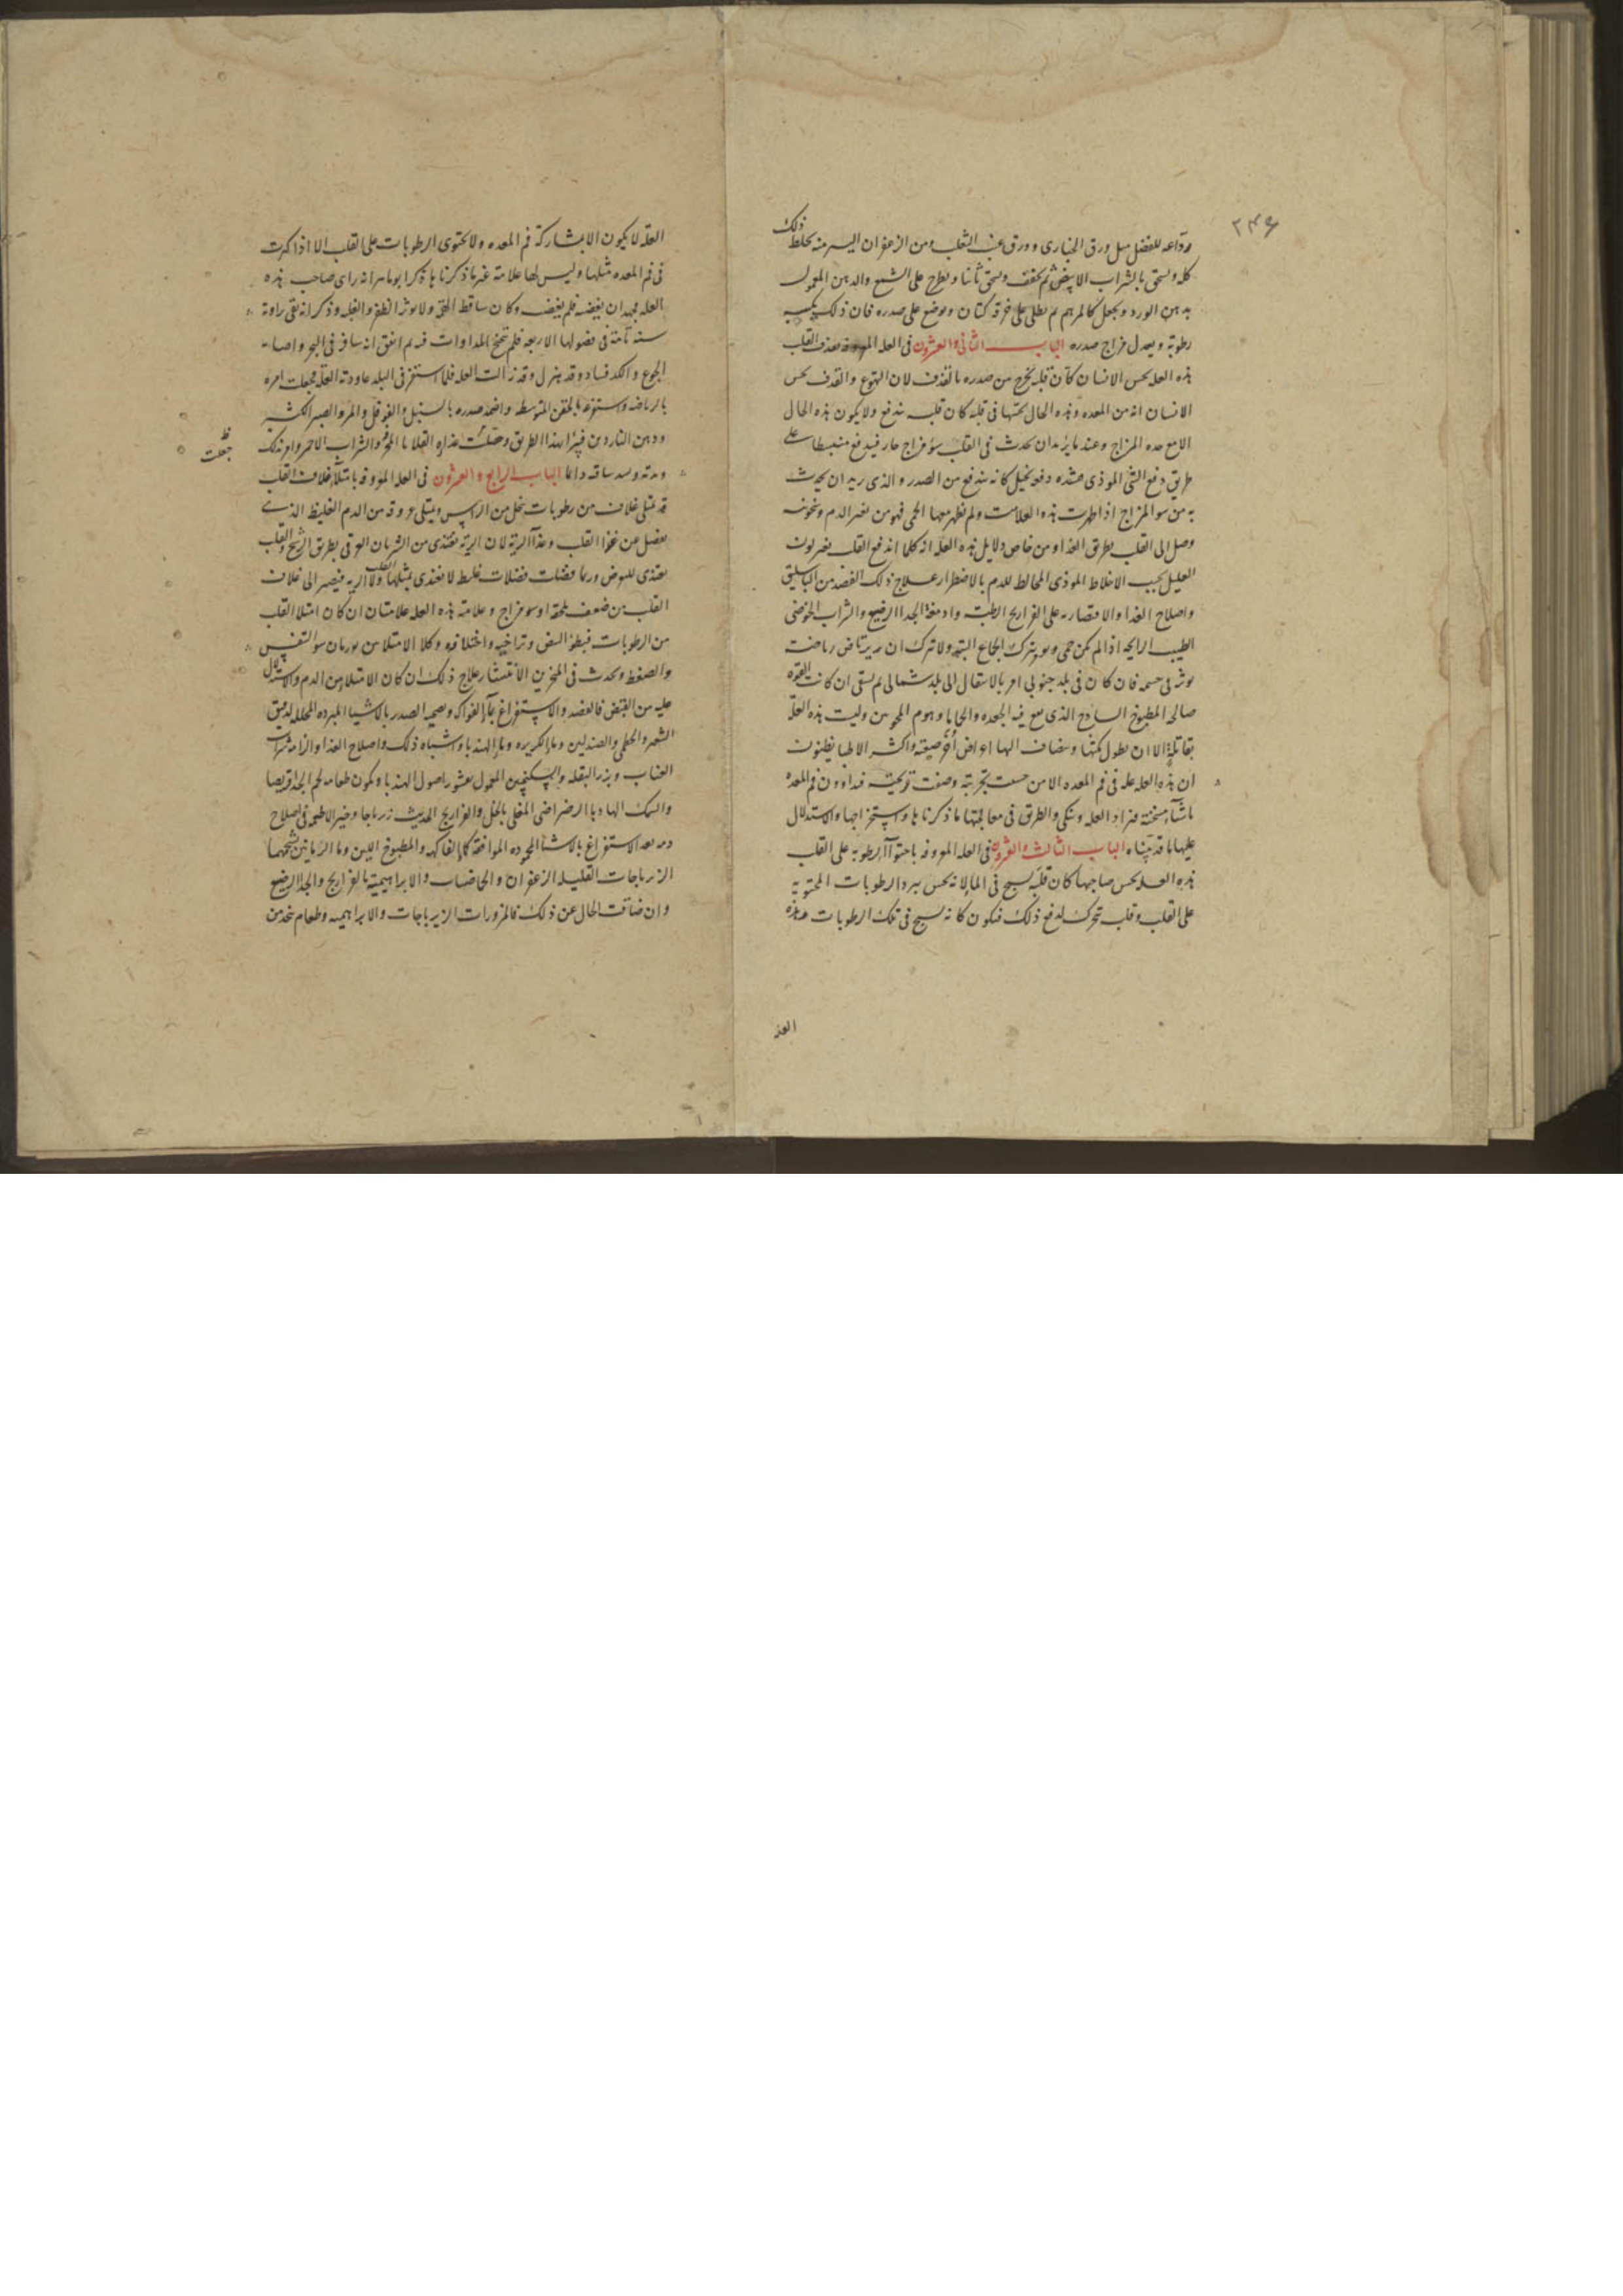 ٢٣٤٦
ذلك
للفضل مثل ورق الخبازى وورق عنب الثعلب ومن الزعفران اليسير منه يخلط
كله ويسحق بالشراب الابيض ثم يجفف ويسحق ثانيا ويطرح على الشمع والدهن المعمول
بدهن الورد ويجعل كالمرهم ثم يطلى على خرقة كتان ويوضع على صدره فان ذلك يكسبه
رطوبة ويعدل مزاج صدره الباب الثانى والعشرون فى العله المعروفه بقذف القلب
هذه العله يحس الانسان كأن قلبه يخرج من صدره بالقذف لان التهوع والقذف يحس
الانسان انه من المعده وهذه الحال يحسها فى قلبه كان قلبه يندفع ولا يكون هذه الحال
الا مع حده المزاج وعند ما يريد ان يحدث فى القلب سؤ مزاج حار فيندفع منبسطا على
طريق دفع الشى الموذى عنده دفعه يخيل كانه يندفع من الصدر والذى يريد ان يحدث
به من سو المزاج اذا ظهرت هذه العلامت ولم يظهر معها الحمى فهو من تغير الدم وعفونه
وصل الى القلب بطريق الغذا ومن خاص دلايل هذه العله انه كلما اندفع القلب تغير لون
العليل بحسب الاخلاط الموذى المخالط للدم بالاضطرار علاج ذلك الفصد من الباسليق
واصلاح الغذا والاقتصار به على الفراريج الرطبة وادمغة الجدا الرضيع والشراب الحوضى
الطيب الرايحه اذا لم يكن حمى ويترك الجماع البتة ولا يترك ان يرتاض رياضت
يوثر فى جسمه فان كان فى بلد جنوبى امر بالانتقال الى بلد شمالى ثم يسقى ان كانت القوه
صالحه المطبوخ الساذج الذى يقع فيه الجعده وليست هذه العلة
بقاتلة الا ان يطول مكثها ويضاف اليها اعراض أُخر صعبة واكثر الاطبا يظنون
ان هذه العله علة فى فم المعده الا من حسنت تجربته فيداوون فم المعده
باشيآ مسخنة فيزاد العله وينكى والطرق فى معالجتها ما ذكرناها واستخراجها والاستدلال
عليها ما قد بيّناه الباب الثالث والعشرون فى العله المعروفه باحتوآ الرطوبه على القلب
هذه العله يحس صاحبها كان قلبه يسبح فى الما لانه يحس ببرد الرطوبات المحتوية
على القلب وقلبه يتحرك لدفع ذلك فيكون كانه يسبح فى تلك الرطوبات وهذه
العله
العلّه لا يكون الا بمشاركة فم المعده ولا يحتوى الرطوبات على القلب الا اذا كثرت
فى فم المعده مثلها وليس لها علامة غير ما ذكرناها ذكر ابوماهر انه راى صاحب هذه
العله وكان ساقط القوى وذكر انه بقى
سنة تامة فى فصولها الاربعه فلم تنجع المداوات فيه ثم اتفق انه سافر فى البحر واصابه
الجوع والكد وقد هزل وقد زالت العله فلما استقر فى البلد عاودته العلة فجعلت امره
بالرياضه واستفرغته بالحقن المتوسطه واضمد صدره بالسنبل والقرنفل والمر والصبر
ودهن الناردين فبرأ بهذا الطريق وجعلت غذاه القلايا والشراب الاحمر
جعلت
الباب الرابع والعشرون فى العله المعروفه بامتلآ غلاف القلب
قد يمتلى غلافه من رطوبات ينحل من الراس ويمتلى عروقه من الدم الغليظ الذى
يفضل عن غذا القلب وغذآ الرئة لان الرية تغتذى من الشريان العرقى بطريق الرشح والقلب
يغتذى للعوض وربما فضلت فضلات غليظه لا يغتذى بمثلها القلب ولا الريه فيصير الى غلاف
القلب من ضعف يلحقه او سو مزاج وعلامة هذه العله علامتان ان كان امتلا القلب
من الرطوبات فبطؤ النبض وتراخيه واختلافه وكلا الامتلاين يورثان سو التنفس
والضغط ويحدث فى المنخرين الانتشار علاج ذلك ان كان الامتلا من الدم والاستدلال
عليه من النبض فالفصد والاستفراغ بمآ الفواكه وتضميد الصدر بالاشيا المبرده المحلله كدقيق
الشعير والخطمى والصندلين وما الكزبره وما الهندبا واشباه ذلك واصلاح الغذا والزامه شراب
العناب وبزر البقله والسكنجبين المعمول بقشور اصول الهندبا ويكون طعامه لحم الجدا قريصا
والسمك الهازبا الرضراضى المغلى بالخل والفراريج الحديث زيرباجا وخير الاطعمه فى اصلاح
دمه بعد الاستفراغ بالاشيآ المحموده الموافقة كما الفاكهه والمطبوخ اللين وما الرمانين بشحمهما
الزيرباجات القليله الزعفران والحماضيات والابراهيمية بالفراريج والجدا الرضيع
وان ضاقت الحال عن ذلك فالمزورات الزيرباجات والابراهيميه وطعام يتخذ من